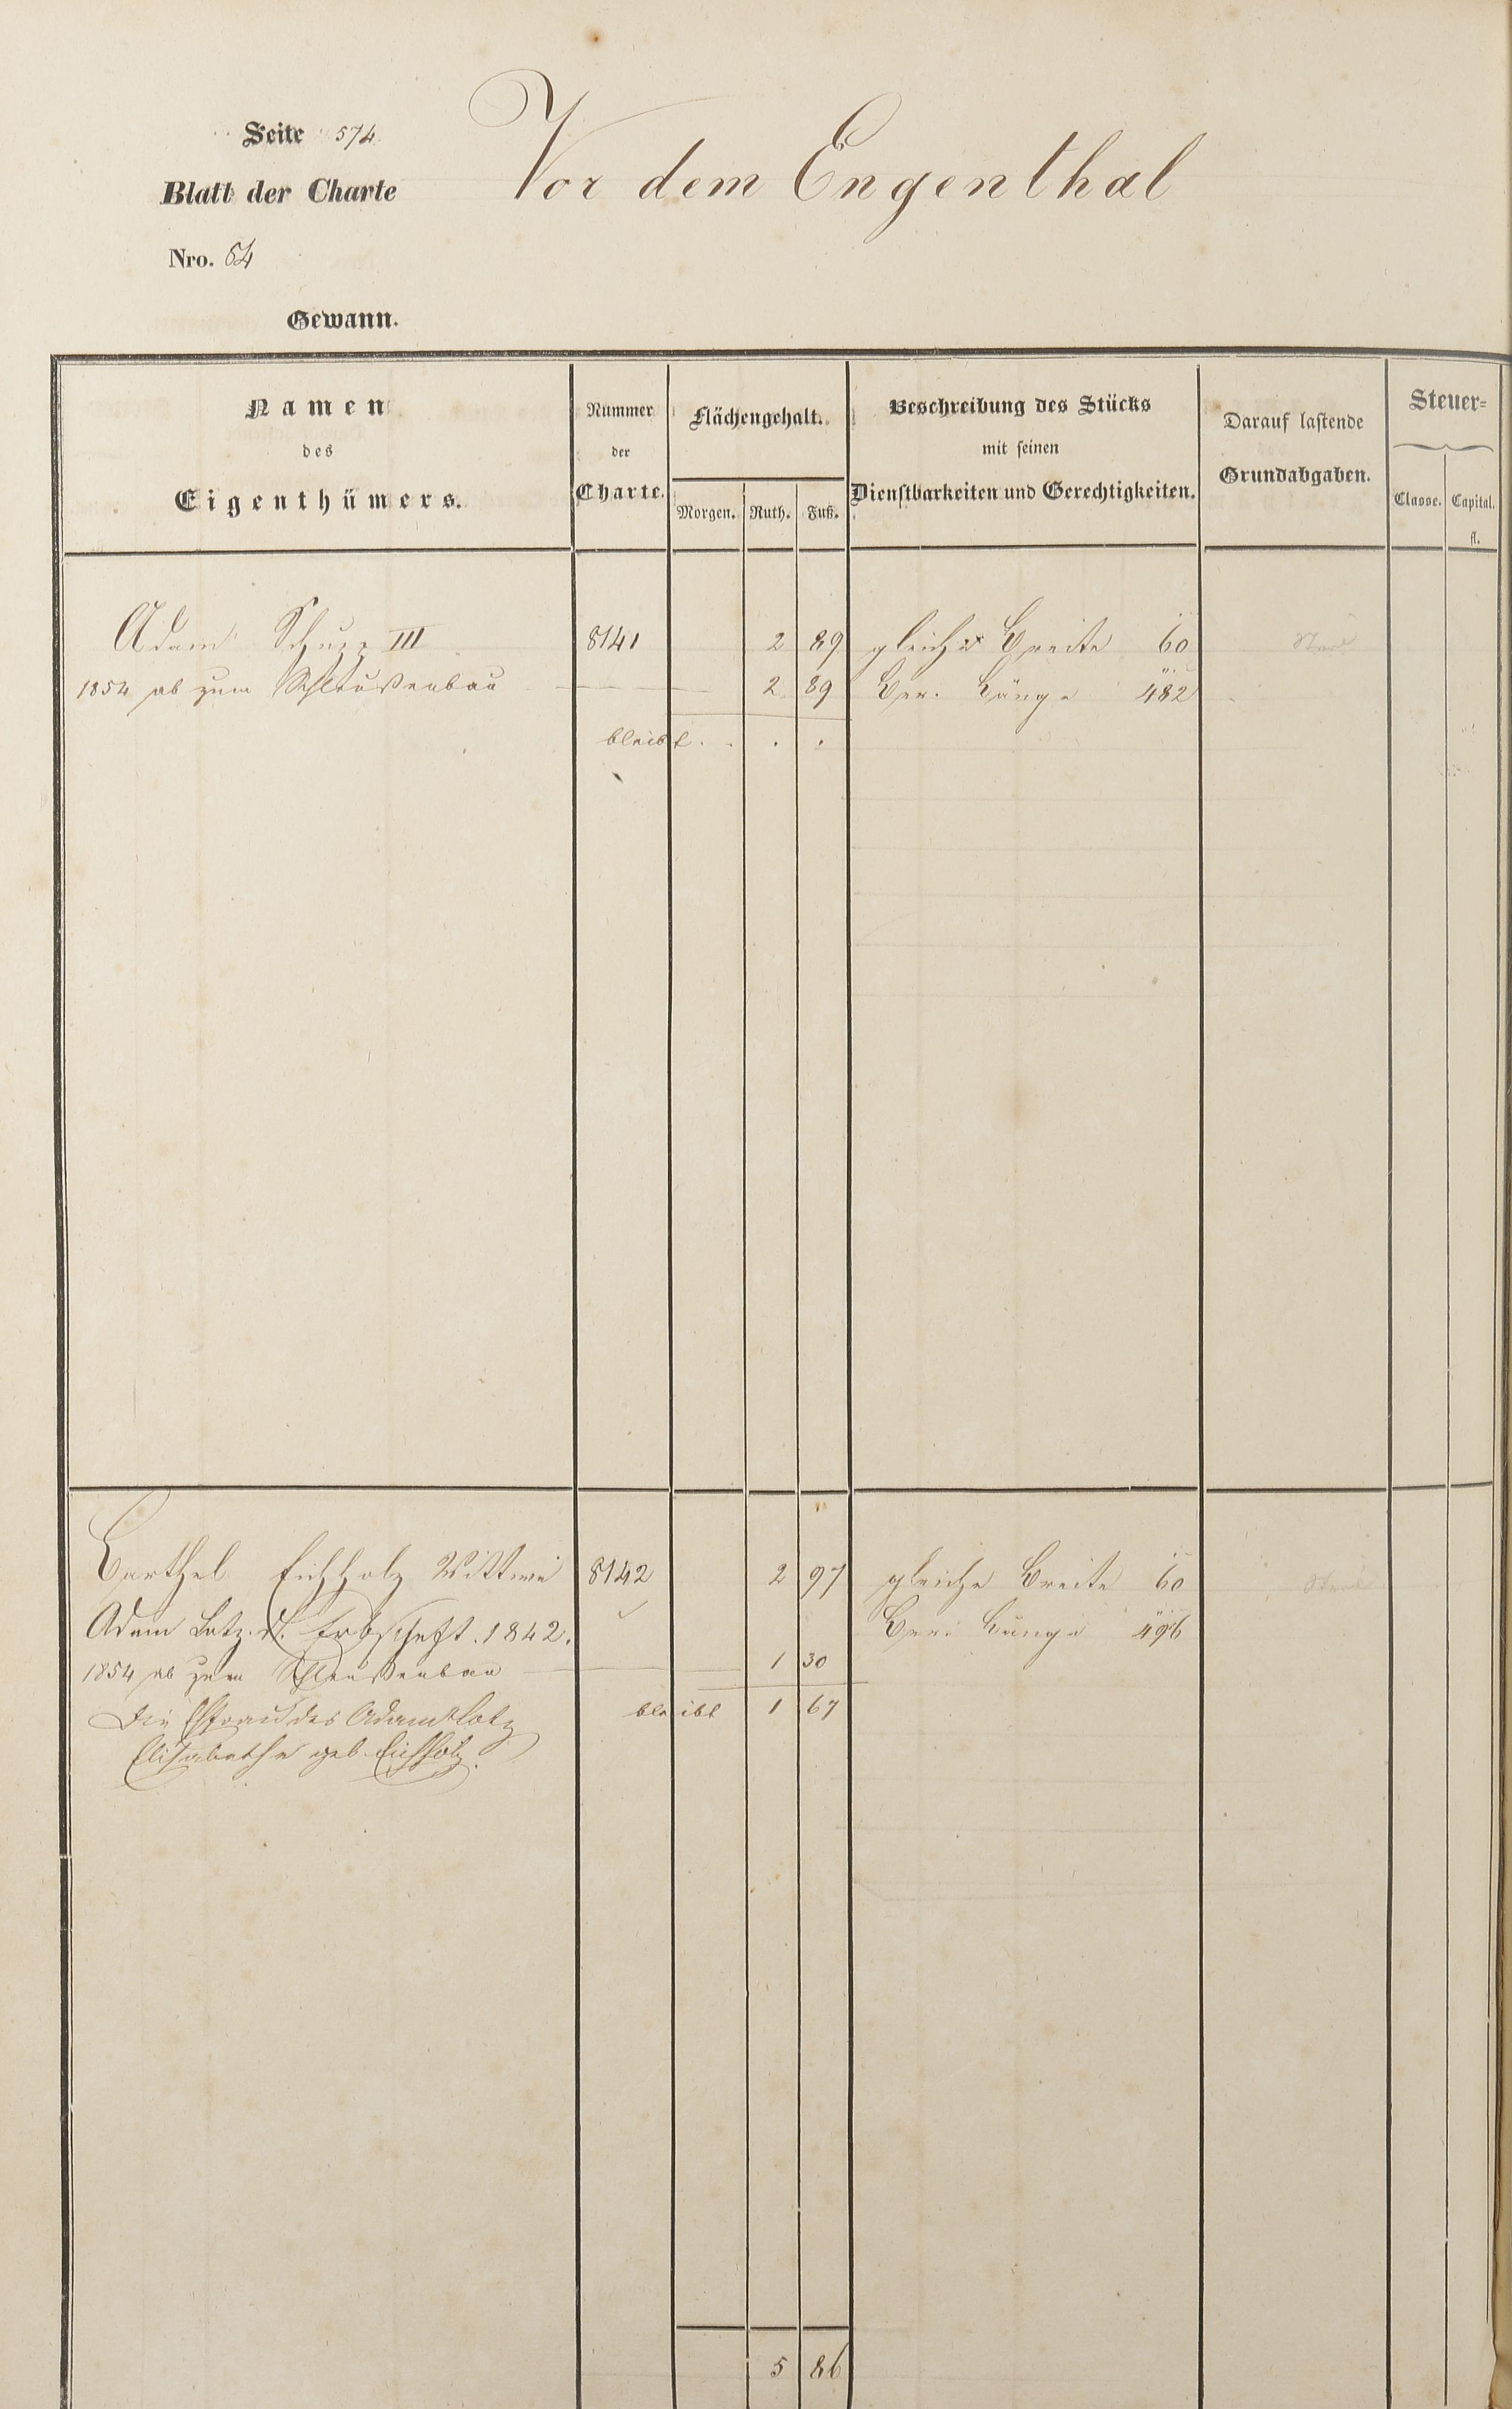 Seite 574
Vor dem Engenthal
Blatt der Charte
Nro. 64
Gewann.
Namen
des
Eigenthümers.
Nummer
der
Charte.
Flächengehalt.
Morgen. Ruth. Fuß.
Beschreibung des Stücks
mit seinen
Dienstbarkeiten und Gerechtigkeiten.
Darauf lastende
Grundabgaben.
Steuer-
Classe. Capital.
fl.
Adam III 8141 2 89 gleiche Breite 60
1854 ab zum Schleußenbau 2 89 Ber. Länge 482
bleibt . . . .
Barthel Eichholz Wittwe 8142 2 97 gleiche Breite 60
Adam Lotz d. Erbschaft. 1842. Ber. Länge 496
1854 ab zum Schleußenbau 1 30
bleibt 1 67
Die Ehefrau des Adam Lotz
Elisabetha geb. Eichholz.
5 86